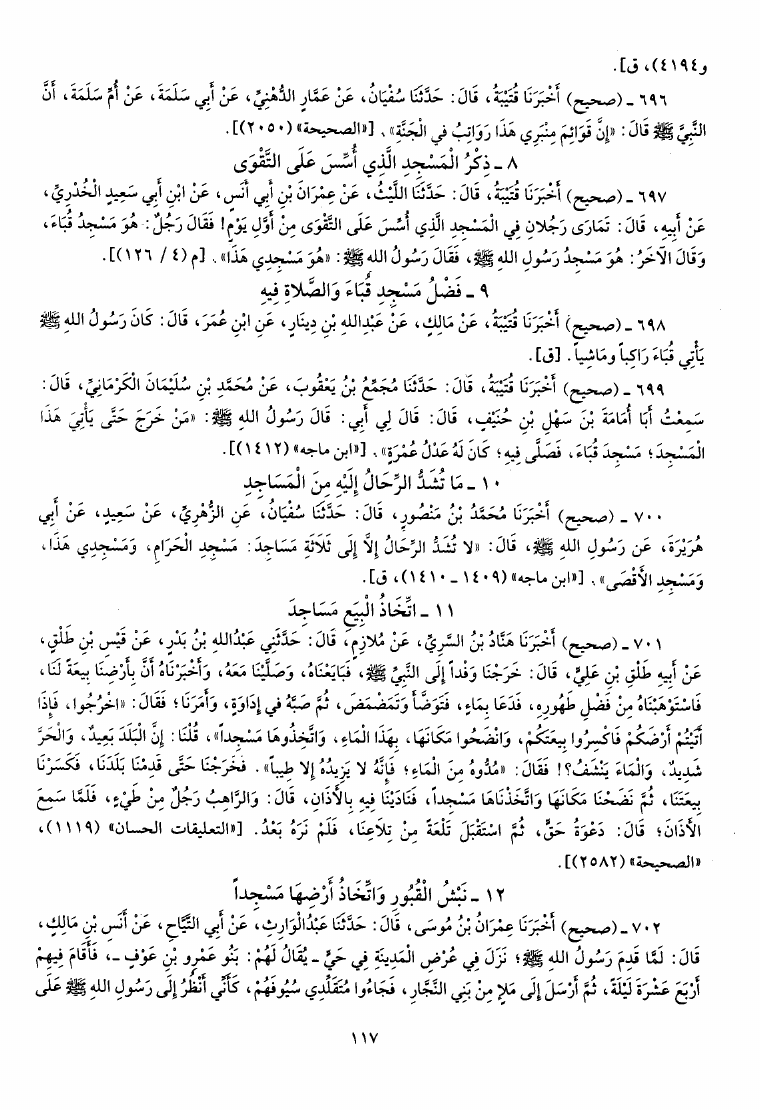 و٤١٩٤)، ق].
٦٩٦ ـ (صحيح) أَخْبَرَنَا قُتَيْبَةُ، قَالَ: حَدَّثَنَا سُفْيَانُ، عَنْ عَمَّارٍ الدُّهْنِيِّ، عَنْ أَبِي سَلَمَةَ، عَنْ أُمِّ سَلَمَةَ، أَنَّ
النَّبِيَّ ﷺ قَالَ: «إِنَّ قَوَائِمَ مِنْبَرِي هَذَا رَوَاتِبُ في الْجَنَّةِ». [«الصحيحة» (٢٠٥٠)].
٨ ـ ذِكْرُ الْمَسْجِدِ الَّذِي أُسِّسَ عَلَى التَّقْوَى
٦٩٧ ـ (صحيح) أَخْبَرَنَا قُتَيْبَةُ، قَالَ: حَدَّثَنَا اللَّيْثُ، عَنْ عِمْرَانَ بْنِ أَبِي أَنَسٍ، عَنْ ابْنِ أَبِي سَعِيدٍ الْخُدْرِيِّ،
عَنْ أَبِيهِ، قَالَ: تَمَارَى رَجُلَانِ فِي الْمَسْجِدِ الَّذِي أُسِّسَ عَلَى التَّقْوَى مِنْ أَوَّلِ يَوْمٍ! فَقَالَ رَجُلٌ: هُوَ مَسْجِدُ قُبَاءَ،
وَقَالَ الْآخَرُ: هُوَ مَسْجِدُ رَسُولِ اللهِ ﷺ، فَقَالَ رَسُولُ اللهِ ﷺ: «هُوَ مَسْجِدِي هَذَا». [م (٤ / ١٢٦)].
٩ ـ فَضْلُ مَسْجِدِ قُبَاءَ وَالصَّلَاةِ فِيهِ
٦٩٨ ـ (صحيح) أَخْبَرَنَا قُتَيْبَةُ، عَنْ مَالِكٍ، عَنْ عَبْدِاللهِ بْنِ دِينَارٍ، عَنِ ابْنِ عُمَرَ، قَالَ: كَانَ رَسُولُ اللهِ ﷺ
يَأْتِي قُبَاءَ رَاكِباً ومَاشِياً. [ق].
٦٩٩ ـ (صحيح) أَخْبَرَنَا قُتَيْبَةُ، قَالَ: حَدَّثَنَا مُجَمِّعُ بْنُ يَعْقُوبَ، عَنْ مُحَمَّدِ بْنِ سُلَيْمَانَ الْكَرْمَانِيِّ، قَالَ:
سَمِعْتُ أَبَا أُمَامَةَ بْنَ سَهْلِ بْنِ حُنَيْفٍ، قَالَ: قَالَ لِي أَبِي: قَالَ رَسُولُ اللهِ ﷺ: «مَنْ خَرَجَ حَتَّى يَأْتِيَ هَذَا
الْمَسْجِدَ؛ مَسْجِدَ قُبَاءَ، فَصَلَّى فِيهِ؛ كَانَ لَهُ عَدْلُ عُمْرَةٍ». [«ابن ماجه» (١٤١٢)].
١٠ ـ مَا تُشَدُّ الرِّحَالُ إِلَيْهِ مِنَ الْمَسَاجِدِ
٧٠٠ ـ (صحيح) أَخْبَرَنَا مُحَمَّدُ بْنُ مَنْصُورٍ، قَالَ: حَدَّثَنَا سُفْيَانُ، عَنِ الزُّهْرِيِّ، عَنْ سَعِيدٍ، عَنْ أَبِي
هُرَيْرَةَ، عَن رَسُولِ اللهِ ﷺ، قَالَ: «لا تُشَدُّ الرِّحَالُ إِلَّا إِلَى ثَلَاثَةِ مَسَاجِدَ: مَسْجِدِ الْحَرَامِ، وَمَسْجِدِي هَذَا،
وَمَسْجِدِ الأَقْصَى». [«ابن ماجه» (١٤٠٩ ـ ١٤١٠)، ق].
١١ ـ اتِّخَاذُ الْبِيَعِ مَسَاجِدَ
٧٠١ ـ (صحيح) أَخْبَرَنَا هَنَّادُ بْنُ السَّرِيِّ، عَنْ مُلَازِمٍ، قَالَ: حَدَّثَنِي عَبْدُاللهِ بْنُ بَدْرٍ، عَنْ قَيْسِ بْنِ طَلْقٍ،
عَنْ أَبِيهِ طَلْقِ بْنِ عَلِيٍّ، قَالَ: خَرَجْنَا وَفْداً إِلَى النَّبِيِّ ﷺ، فَبَايَعْنَاهُ، وَصَلَّيْنَا مَعَهُ، وَأَخْبَرْنَاهُ أَنَّ بِأَرْضِنَا بِيعَةً لَنَا،
فَاسْتَوْهَبْنَاهُ مِنْ فَضْلِ طَهُورِهِ، فَدَعَا بِمَاءٍ، فَتَوَضَّأَ وَتَمَضْمَضَ، ثُمَّ صَبَّهُ في إِدَاوَةٍ، وَأَمَرَنَا؛ فَقَالَ: «اخْرُجُوا، فَإِذَا
أَتَيْتُمْ أَرْضَكُمْ فَاكْسِرُوا بِيعَتَكُمْ، وَانْضَحُوا مَكَانَهَا، بِهَذَا الْمَاءِ، وَاتَّخِذُوهَا مَسْجِداً»، قُلْنَا: إِنَّ الْبَلَدَ بَعِيدٌ، وَالْحَرَّ
شَدِيدٌ، وَالْمَاءَ يَنْشَفُ؟! فَقَالَ: «مُدُّوهُ مِنَ الْمَاءِ؛ فَإِنَّهُ لا يَزِيدُهُ إِلا طِيباً». فَخَرَجْنَا حَتَّى قَدِمْنَا بَلَدَنَا، فَكَسَرْنَا
بِيعَتَنَا، ثُمَّ نَضَحْنَا مَكَانَهَا وَاتَّخَذْنَاهَا مَسْجِداً، فَنَادَيْنَا فِيهِ بِالْأَذَانِ، قَالَ: وَالرَّاهِبُ رَجُلٌ مِنْ طَيِّءٍ، فَلَمَّا سَمِعَ
الأَذَانَ؛ قَالَ: دَعْوَةُ حَقٍّ، ثُمَّ اسْتَقْبَلَ تَلْعَةً مِنْ تِلَاعِنَا، فَلَمْ نَرَهُ بَعْدُ. [«التعليقات الحسان» (١١١٩)،
«الصحيحة» (٢٥٨٢)].
١٢ ـ نَبْشُ الْقُبُورِ وَاتِّخَاذُ أَرْضِهَا مَسْجِداً
٧٠٢ ـ (صحيح) أَخْبَرَنَا عِمْرَانُ بْنُ مُوسَى، قَالَ: حَدَّثَنَا عَبْدُالْوَارِثِ، عَنْ أَبِي التَّيَّاحِ، عَنْ أَنَسِ بْنِ مَالِكٍ،
قَالَ: لَمَّا قَدِمَ رَسُولُ اللهِ ﷺ؛ نَزَلَ فِي عُرْضِ الْمَدِينَةِ فِي حَيٍّ ـ يُقَالُ لَهُمْ: بَنُو عَمْرِو بْنِ عَوْفٍ ـ، فَأَقَامَ فِيهِمْ
أَرْبَعَ عَشْرَةَ لَيْلَةً، ثُمَّ أَرْسَلَ إِلَى مَلإٍ مِنْ بَنِي النَّجَّارِ، فَجَاءُوا مُتَقَلِّدِي سُيُوفِهُمْ، كَأَنِّي أَنْظُرُ إِلَى رَسُولِ اللهِ ﷺ عَلَى
١١٧